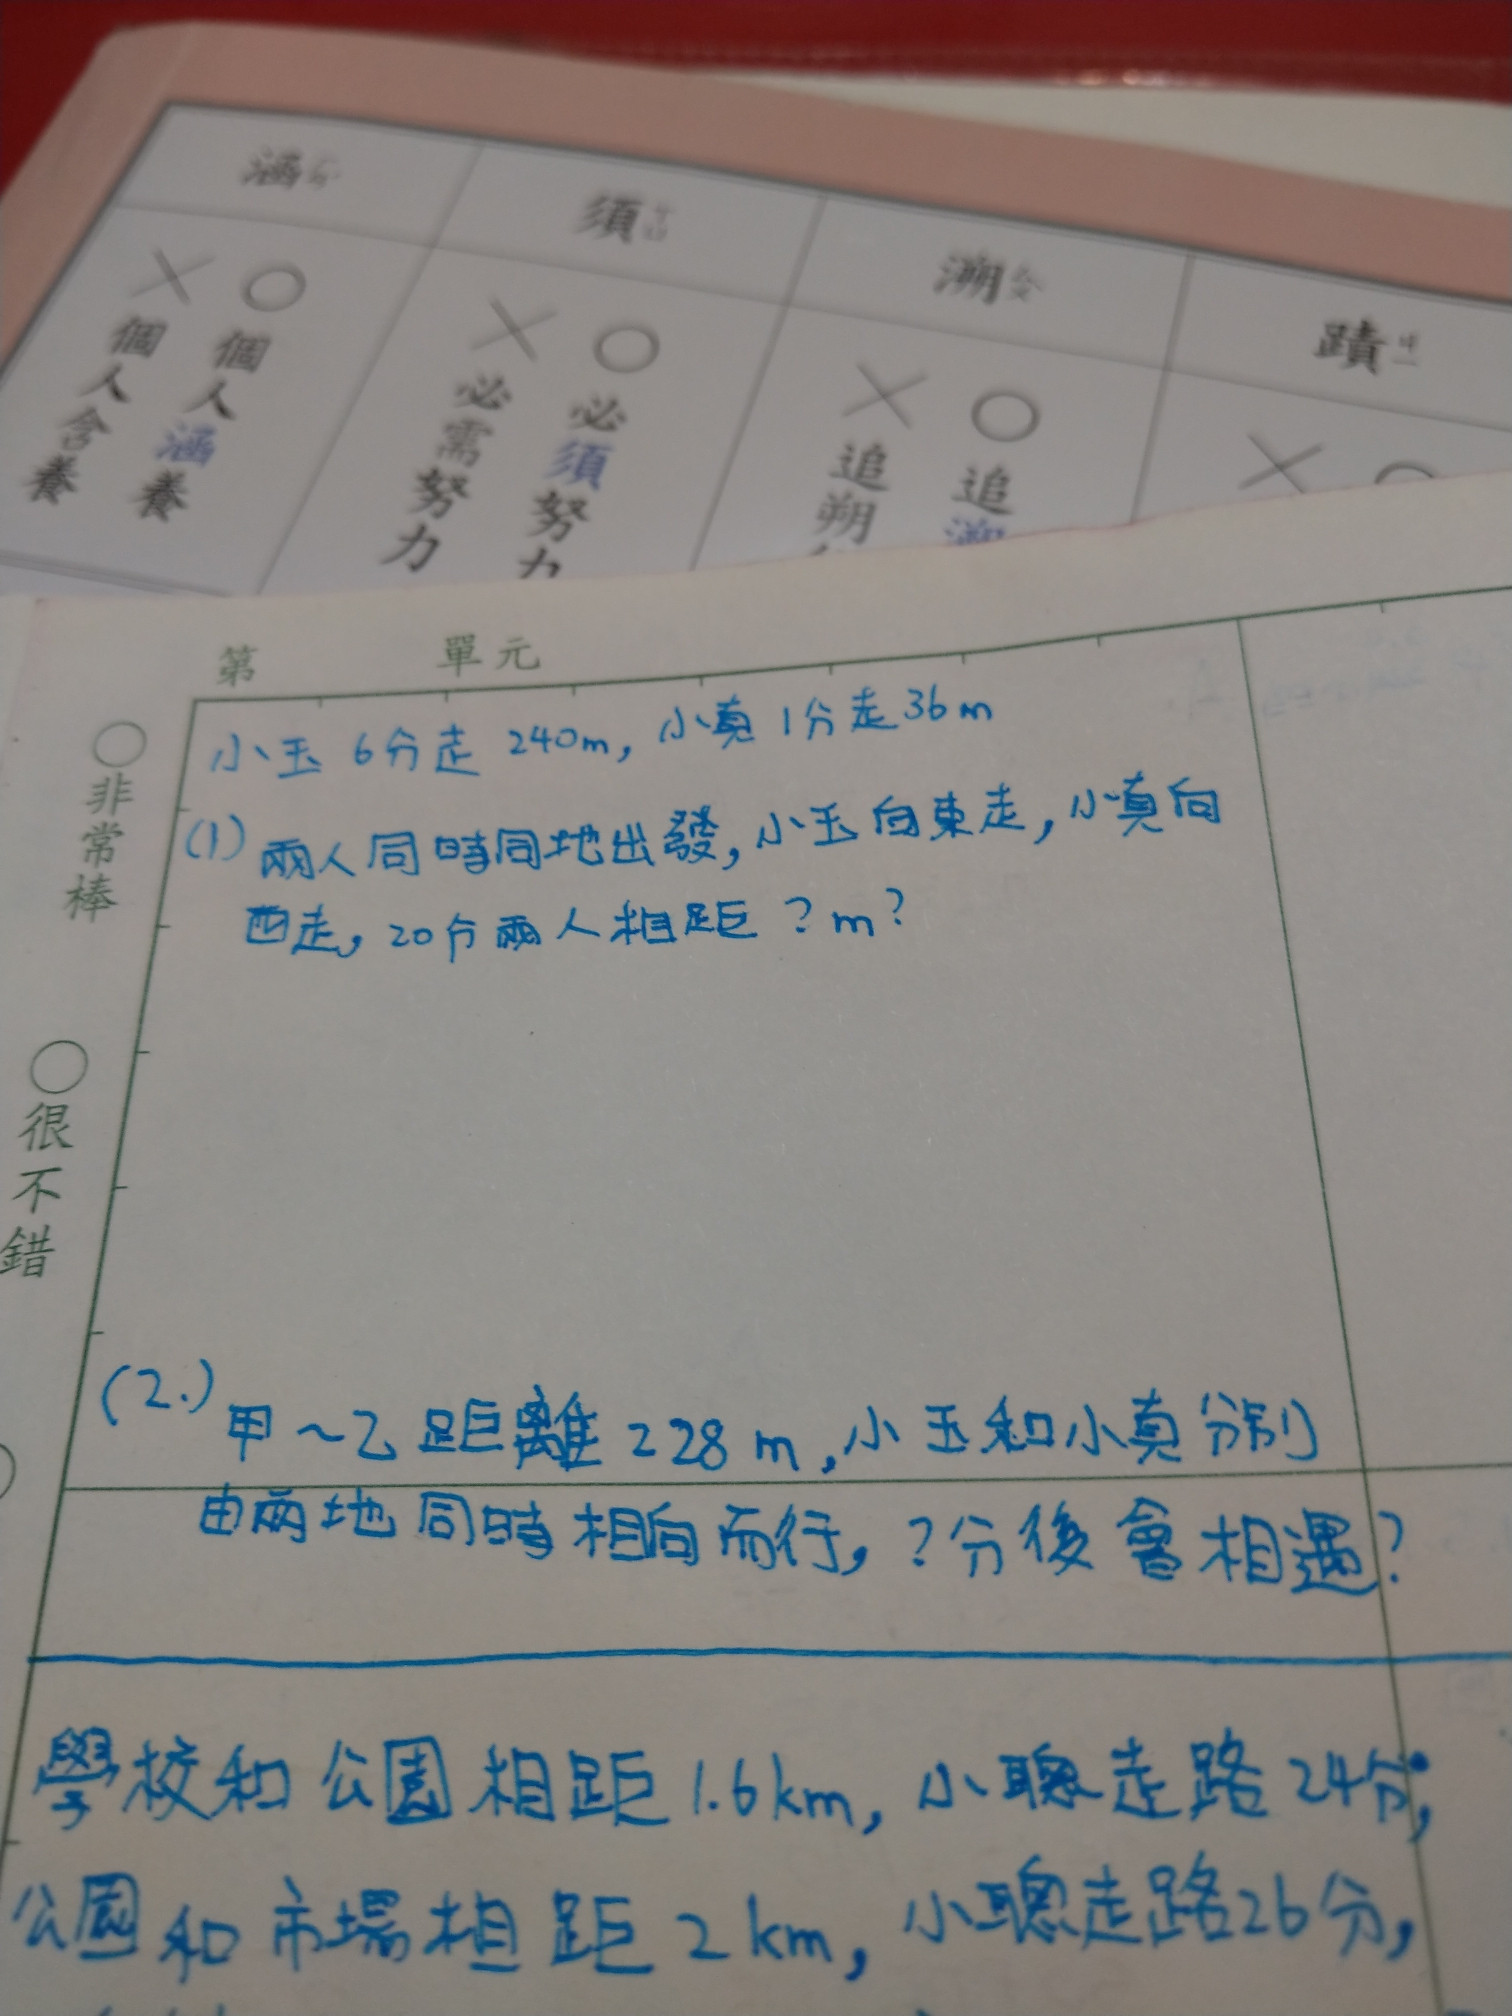 涵 須 溯 蹟
○個人涵養
×個人含養
○必須努力
×必需努力
○追溯
×追朔
×
第 單元
○非常棒
○很不錯
小玉 6分走 240m, 小真 1分走36m
(1) 兩人同時同地出發, 小玉向東走, 小真向
西走, 20分兩人相距 ? m?
(2.) 甲~乙距離 228 m, 小玉和小真分別
由兩地同時相向而行, ?分後會相遇?
學校和公園相距 1.6km, 小聰走路24分,
公園和市場相距 2km, 小聰走路26分,